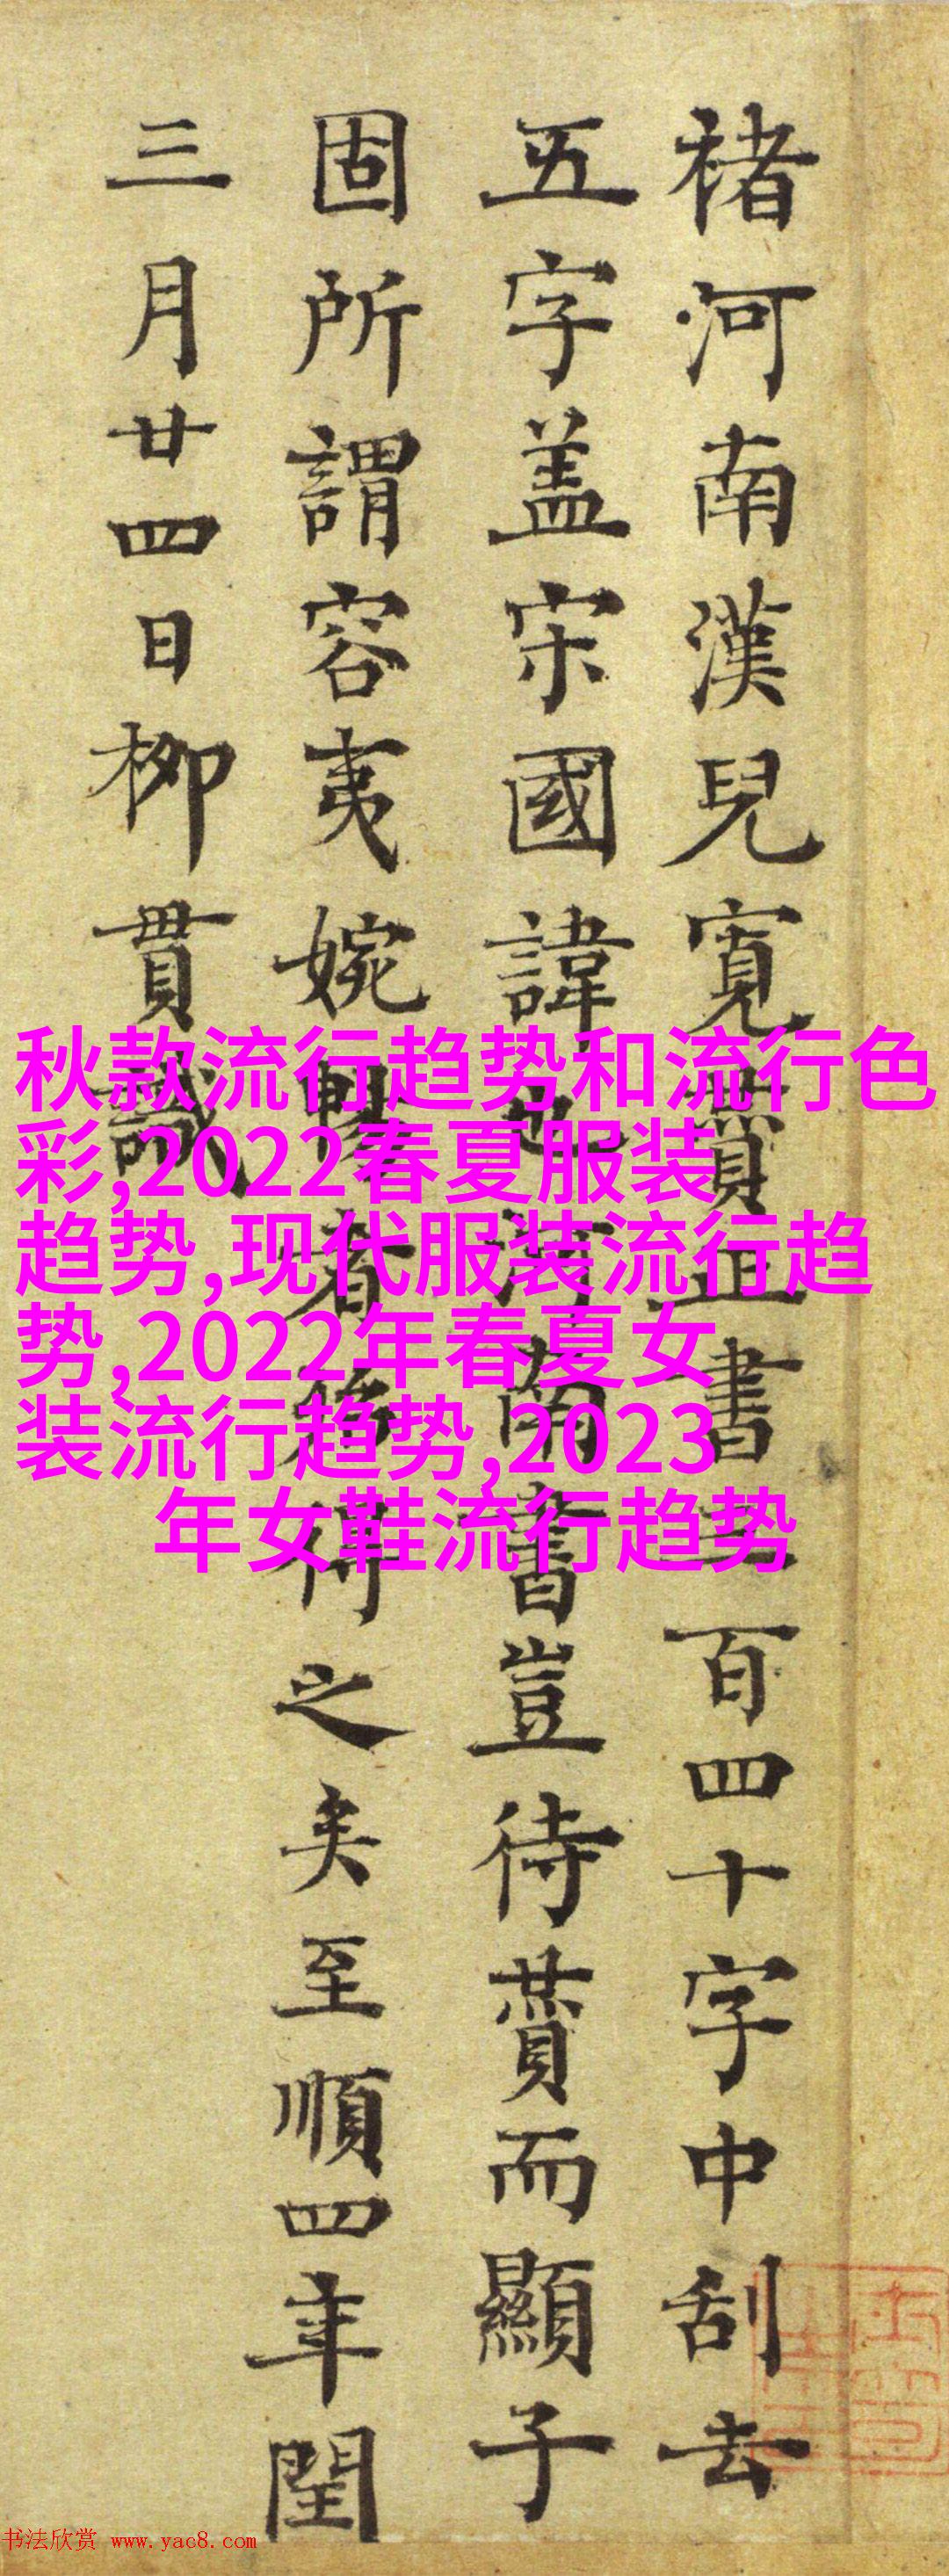 褚河南漢兒寬賛正書三百四十字中刮去
五字盖宋國諱也河南書豈待賛而顯子
固所謂容夷婉暢者為得之矣至順四年閏
三月廿四日柳貫識
秋款流行趋势和流行色
彩,2022春夏服装
趋势,现代服装流行趋
势,2022年春夏女
装流行趋势,2023
年女鞋流行趋势
书法欣赏 www.yac8.com